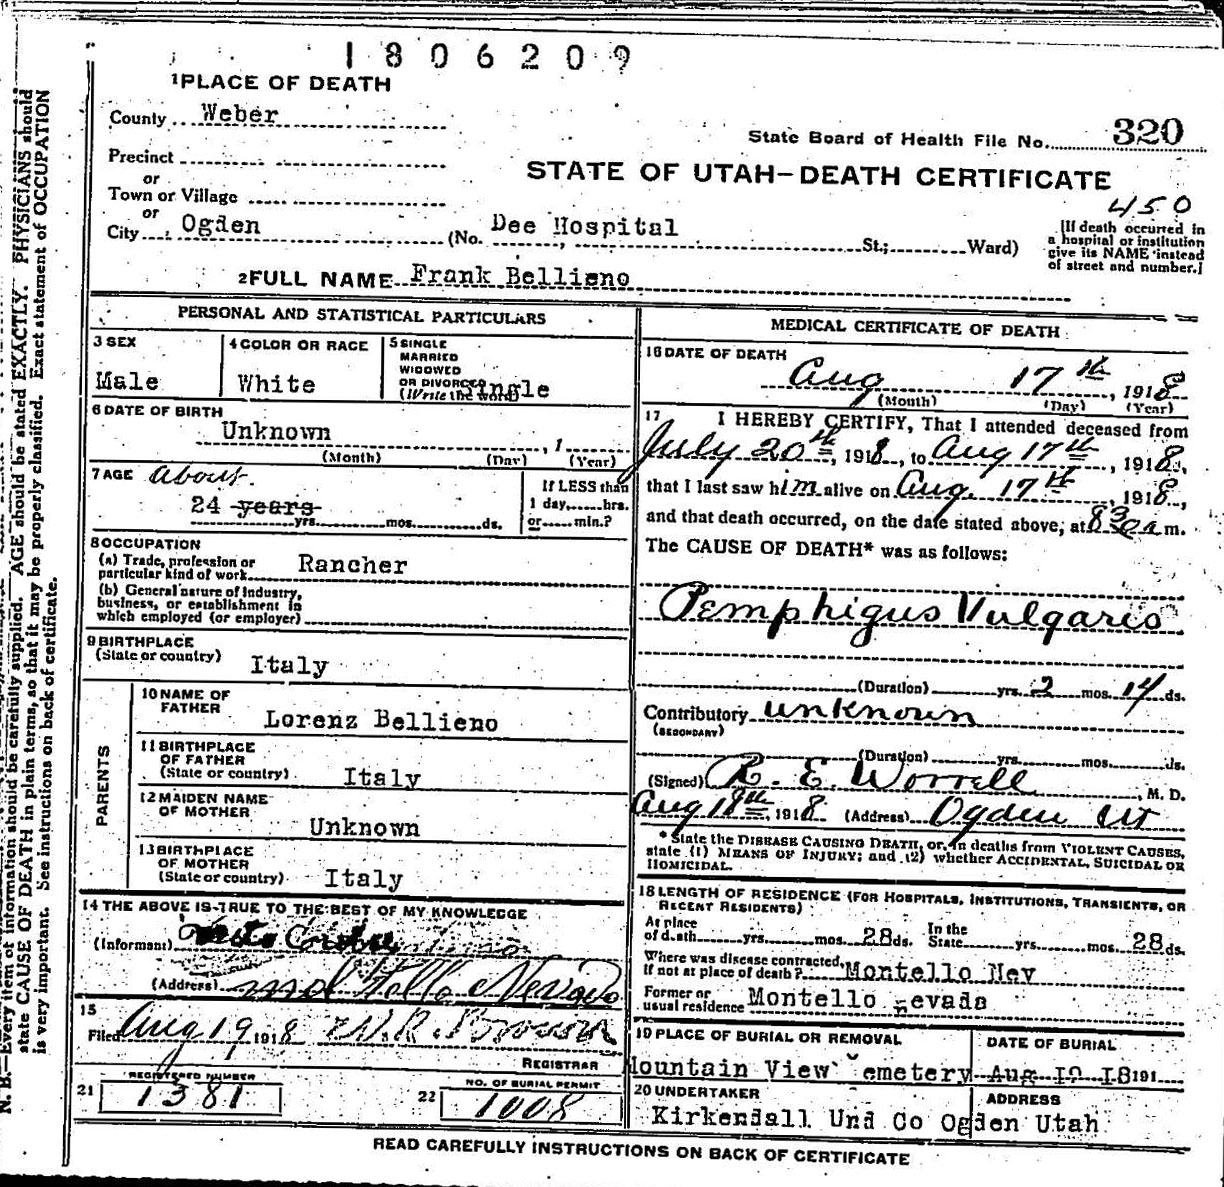 1806209
1 PLACE OF DEATH
County Weber
State Board of Health File No. 320
Precinct
or
STATE OF UTAH—DEATH CERTIFICATE
Town or Village
or
450
City Ogden (No. Dee Hospital St.; Ward)
[If death occurred in
a hospital or institution
give its NAME instead
of street and number.]
2 FULL NAME Frank Bellieno
PERSONAL AND STATISTICAL PARTICULARS
3 SEX
Male
4 COLOR OR RACE
White
5 SINGLE
MARRIED
WIDOWED
OR DIVORCED
(Write the word)
Single
6 DATE OF BIRTH
Unknown , 1
(Month) (Day) (Year)
7 AGE About
24 years
yrs. mos. ds.
If LESS than
1 day, hrs.
or min.?
8 OCCUPATION
(a) Trade, profession or
particular kind of work Rancher
(b) General nature of Industry,
business, or establishment in
which employed (or employer)
9 BIRTHPLACE
(State or country) Italy
PARENTS
10 NAME OF
FATHER Lorenz Bellieno
11 BIRTHPLACE
OF FATHER
(State or country) Italy
12 MAIDEN NAME
OF MOTHER
Unknown
13 BIRTHPLACE
OF MOTHER
(State or country) Italy
14 THE ABOVE IS TRUE TO THE BEST OF MY KNOWLEDGE
(Informant)
(Address) Nevada
15
Filed Aug 19 1918 W. R. Brown
REGISTRAR
21 REGISTERED NUMBER
1381
22 NO. OF BURIAL PERMIT
1008
MEDICAL CERTIFICATE OF DEATH
16 DATE OF DEATH
Aug 17th, 1918
(Month) (Day) (Year)
17 I HEREBY CERTIFY, That I attended deceased from
July 20th, 1918, to Aug 17th, 1918,
that I last saw him alive on Aug. 17th, 1918,
and that death occurred, on the date stated above, at 830 a m.
The CAUSE OF DEATH* was as follows:
Pemphigus Vulgaris
(Duration) yrs. 2 mos. 14 ds.
Contributory unknown
(SECONDARY)
(Duration) yrs. mos. ds.
(Signed) R. E. Worrell, M. D.
Aug 18th, 1918 (Address) Ogden Ut
* State the DISEASE CAUSING DEATH, or, in deaths from VIOLENT CAUSES,
state (1) MEANS OF INJURY; and (2) whether ACCIDENTAL, SUICIDAL OR
HOMICIDAL.
18 LENGTH OF RESIDENCE (FOR HOSPITALS, INSTITUTIONS, TRANSIENTS, OR
RECENT RESIDENTS)
At place
of death yrs. mos. 28 ds.
In the
State yrs. mos. 28 ds.
Where was disease contracted,
if not at place of death? Montello Nev
Former or
usual residence Montello Nevada
19 PLACE OF BURIAL OR REMOVAL
Mountain View Cemetery
DATE OF BURIAL
Aug 19 18 191
20 UNDERTAKER
Kirkendall Und Co
ADDRESS
Ogden Utah
READ CAREFULLY INSTRUCTIONS ON BACK OF CERTIFICATE
N. B.—Every item of information should be carefully supplied. AGE should be stated EXACTLY. PHYSICIANS should
state CAUSE OF DEATH in plain terms, so that it may be properly classified. Exact statement of OCCUPATION
is very important. See instructions on back of certificate.